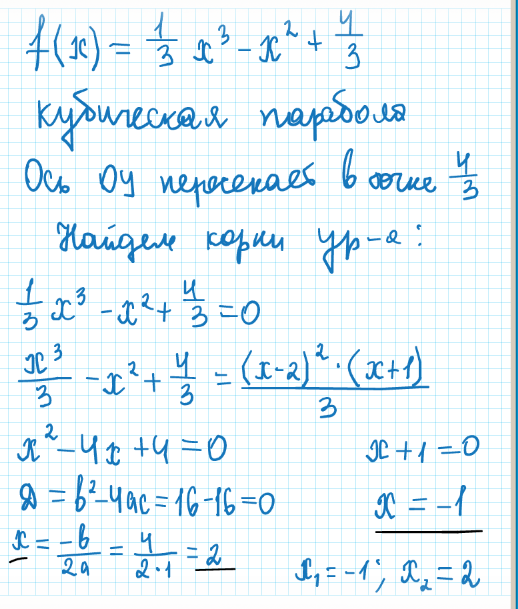 f(x) = 1/3 x³ - x² + 4/3
кубическая парабола
Ось OY пересекает в точке 4/3
Найдем корни ур-я:
1/3 x³ - x² + 4/3 = 0
x³/3 - x² + 4/3 = (x-2)² · (x+1)/3
x² - 4x + 4 = 0
x + 1 = 0
D = b² - 4ac = 16 - 16 = 0
x = -1
x = -b/2a = 4/2·1 = 2
x₁ = -1; x₂ = 2